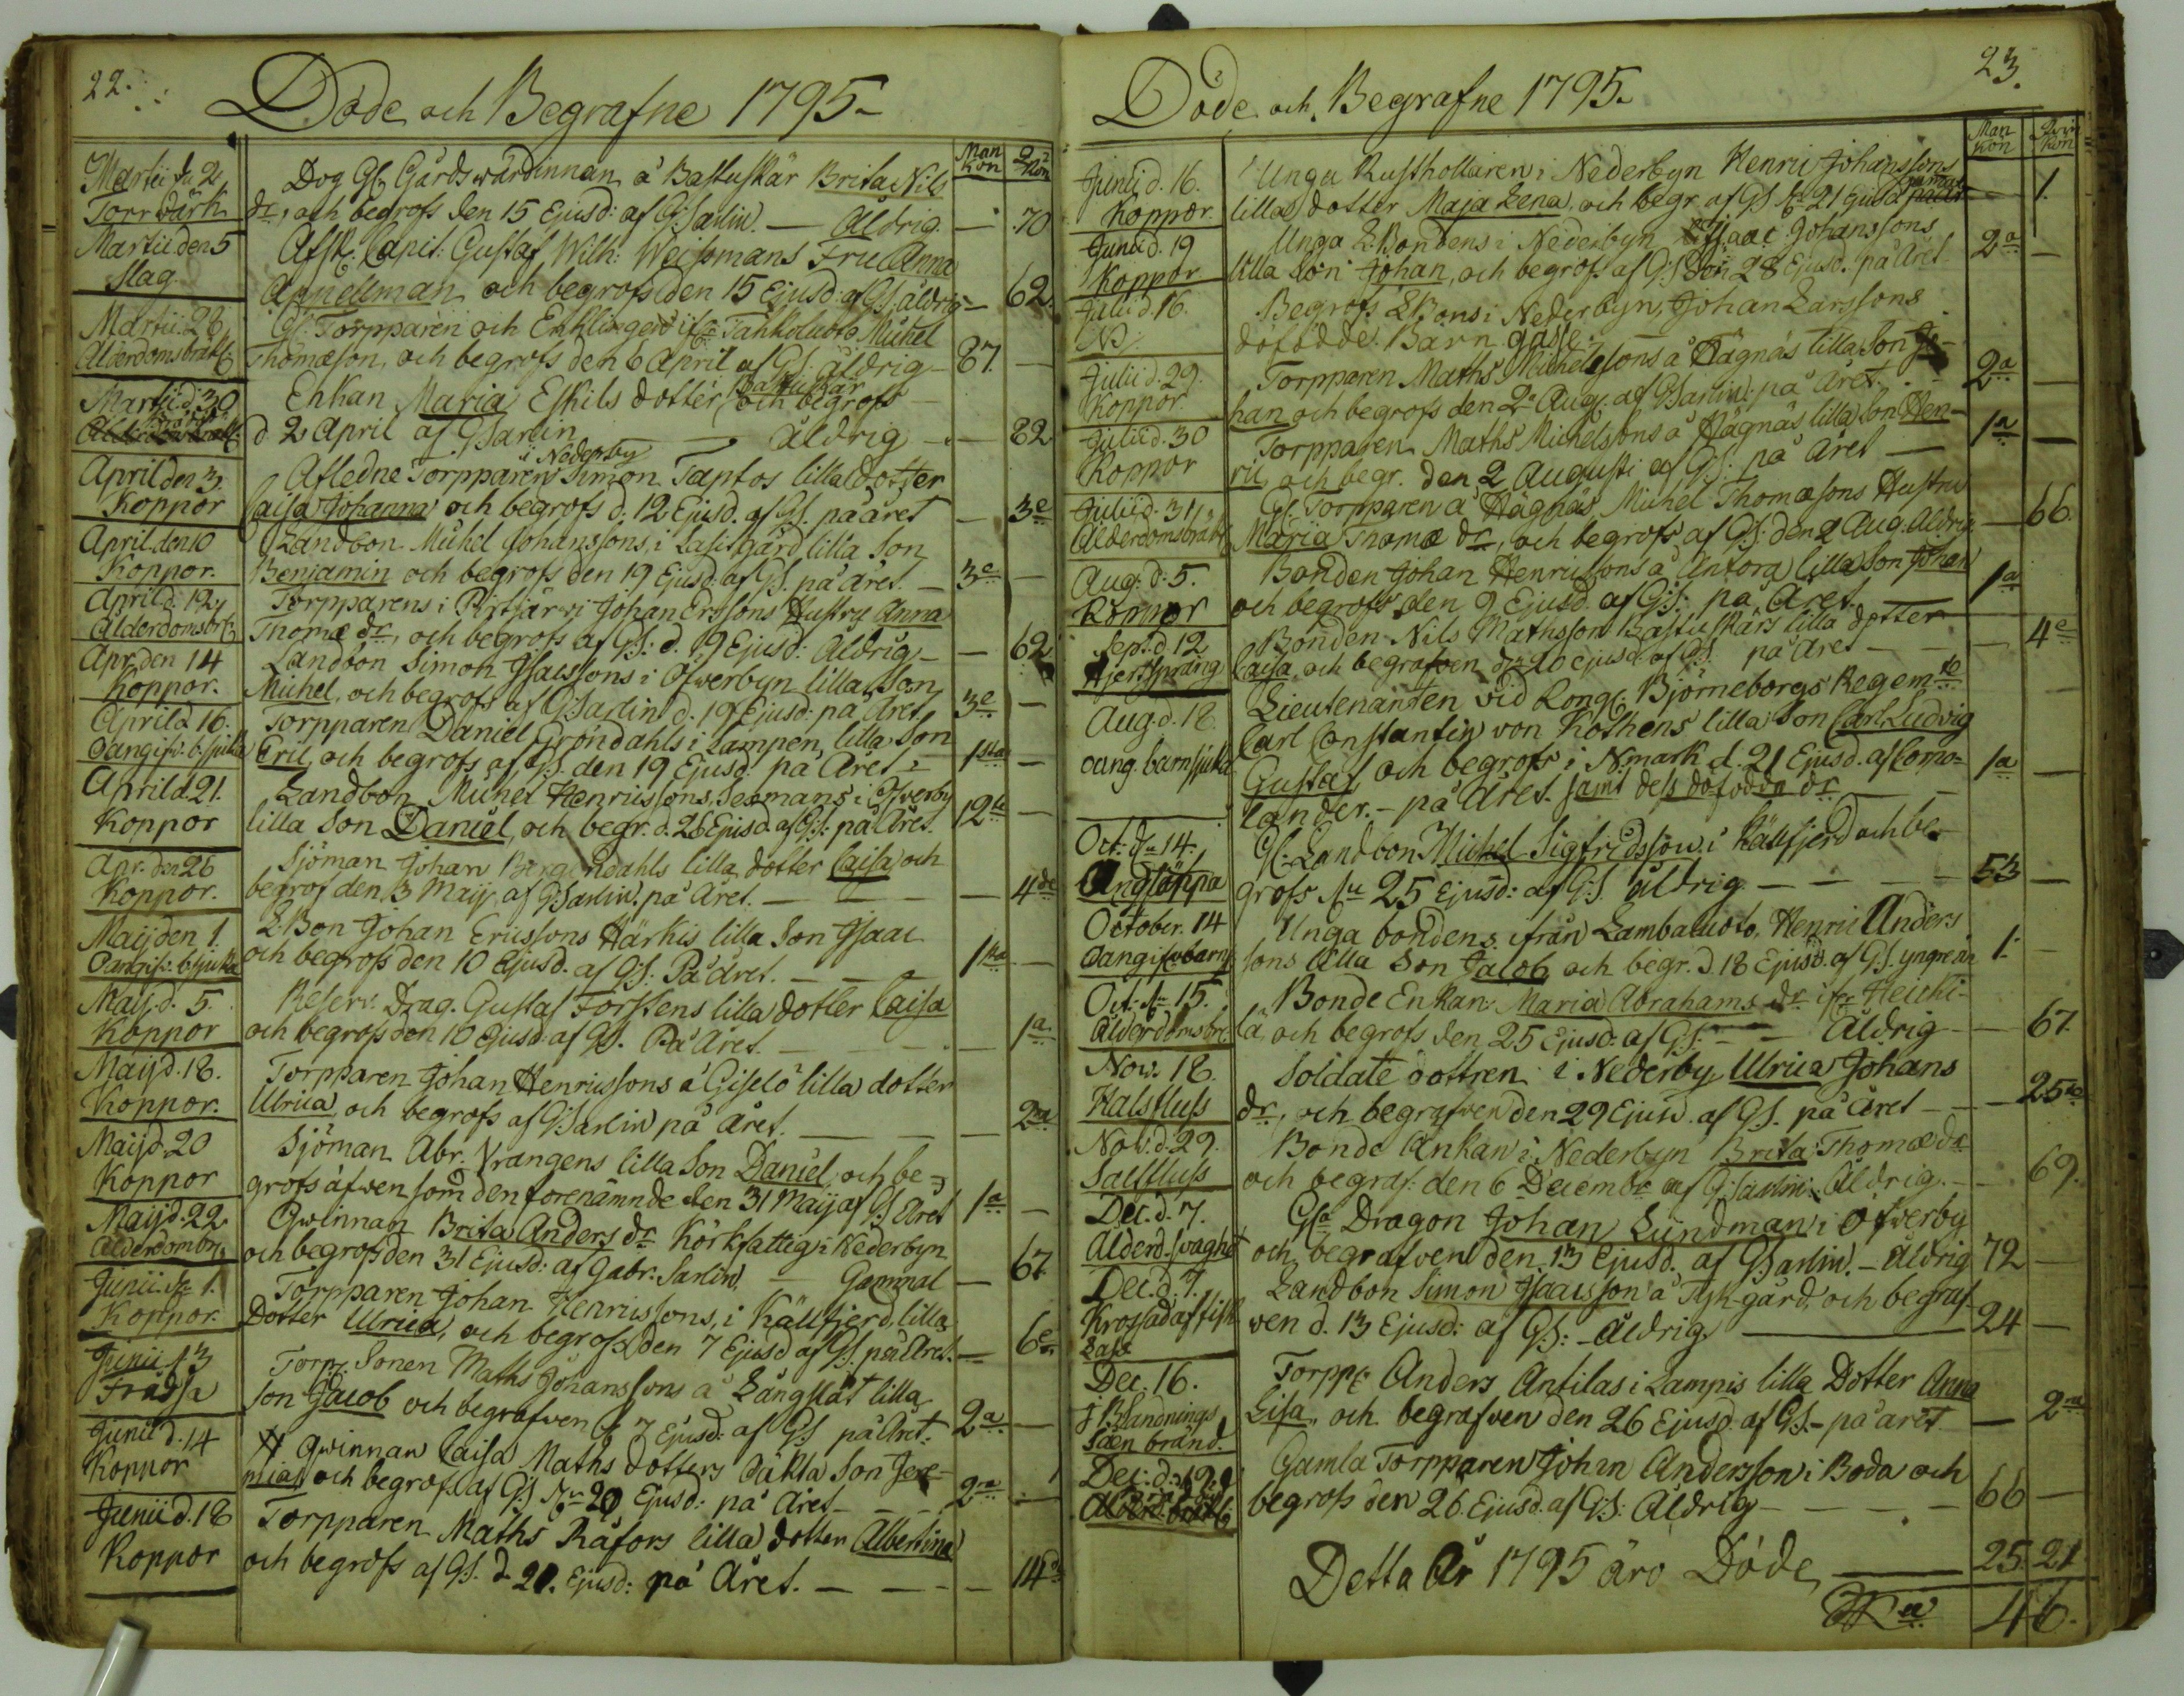 22.
Döde och Begrafne 1795
Man Kön
Q Kön
Martii d. 2
Torr wärk
Dog Gl. Gårdswärdinnan å Bastuskär Brita Nils
dr, och begrofs den 15 Ejusd: af G: Sarlin. — Åldrig. — 70
Martii den 5
Slag
Afsk. Capit: Gustaf Wilh: Weissmans Fru Anna
Appellman och begrofs den 15 Ejusd: af G.S. åldrig — 62.
Martii. 28
Ålderdomsbräkl.
Gl. Torpparen och Enklingen Michel
Thomæson, och begrofs den 6 April af G.S. åldrig — 87. —
Martii d. 30
Enkan Maria Eskils dotter Bastuskär och begrofs
d. 2 April af G Sarlin — Åldrig — 82
April den 3.
Koppor
Afledne Torpparen i Nederby Simon Tantos lilla dotter
Caisa Johanna och begrofs d. 12 Ejusd. af G.S. på året — 3e
April. den 10
Koppor.
Landbon Michel Johanssons, i Lasisgård lilla Son
Benjamin och begrofs den 19 Ejusd: af G.S. på Året. — 3e —
April d. 12
Ålderdomsbr.
Torpparens i Johan Erssons Hustru Anna
Thomæ dr, och begrofs af G.S: d. 19 Ejusd: Åldrig — 62
Apr. den 14
Koppor.
Landbon Simon Isacssons i Öfwerbyn lilla Son
Michel, och begrofs af G Sarlin d. 19 Ejusd: på Året 3e —
April d. 16.
Oangifv. b. sjuka
Torpparen Daniel Gröndahls i Lampen, lilla Son
Eric, och begrofs af G.S. den 19 Ejusd: på Året — 1sta —
April d. 21.
Koppor
Landbon Michel Henricssons, Seomans i Öfverby
lilla Son Daniel, och begr. d. 26 Ejusd. af G.S: på Året. 12te —
Apr. den 26
Koppor.
Sjöman Johan Bergendahls lilla dotter Caisa och
begrof den 3 Maij af G Sarlin. på Året. — — — 4de
Maij den 1.
Oangifv: b. sjuka
L. Bon Johan Ericssons Härkis lilla Son Isaac
och begrofs den 10 Ejusd. af G.S. På Året. — 1sta —
Maij. d. 5.
Koppor
Reserv. Drag. Gustaf Forstens lilla dotter Caisa
och begrofs den 10 Ejusd: af G.S. På Året. — — 1a
Maij d. 18.
Koppor.
Torpparen Johan Henricssons å Giselö lilla dotter
Ulrica, och begrofs af G Sarlin på Året. — — 2ra
Maij d. 20
Koppor
Sjöman Abr. Vrangens lilla Son Daniel, och be-
grofs äfwensom den forenämnde den 31 Maij af G.S. Året 1a —
Maij d. 22
Ålderdombr.
Qwinnan Brita Anders dr Körkfattig i Nederbyn
och begrofs den 31 Ejusd: af Gabr: Sarlin — Gammal — 67.
Junii d. 1.
Koppor.
Torpparen Johan Henricssons, i Källfjerd, lilla
Dotter Ulrica, och begrofs den 7 Ejusd af G.S. på Året. — 6e
Junii 13
Frässa
Torp. Sonen Maths Johanssons å Långslät lilla
son Jacob och begrafwen d. 7 Ejusd: af G.S. på Året. 2a —
Junii d. 14
Koppor
Qwinnan Caisa Maths dotters oäkta Son Jere-
mias och begrof. af G.S. d. 20 Ejusd: på Året — 2ra —
Junii d. 18
Koppor
Torpparen Maths Råfors lilla dotter Albertina
och begrofs af G.S. d 21. Ejusd: på Året. — — — 14d
23.
Döde och Begrafne 1795.
Man Kön
Qvin Kön
Junii d. 16.
Koppor.
Unga Rusthollaren i Nederbyn Henric Johanssons
lilla dotter Maja Lena, och begr. af G.S. d. 21 Ejusd — 1.
Junii d. 19
Koppor
Unga L. Bondens i Nederbyn Isaac Johanssons
lilla Son Johan, och begrofs af G.S. den 28 Ejusd. på Året 2a —
Julii d. 16.
Begrofs L Bons i Nederbyn, Johan Larssons
döfödde Barn gåsse.
Julii d. 29.
Koppor.
Torpparen Maths Michelssons å Hägnäs lilla Son Jo-
han och begrofs den 2a Aug. af G Sarlin. på Året. 2a —
Julii d. 30
Koppor
Torpparen Maths Michelssons å Hägnäs lilla Son Hen-
ric, och begr. den 2 Augusti af G.S: på Året — 1a —
Julii d. 31
Ålderdomsbräkl
Gl. Torpparen å Hägnäs Michel Thomæsons Hustru
Maria Thomæ dr, och begrofs af G.S: den 2 Aug. åldrig — 66.
Aug: d. 5.
Koppor
Bonden Johan Henricssons å Antora lilla Son Johan
och begrofs den 9 Ejusd af G.S: på Året. — 1a
Sept. d. 12
Hjertspräng
Bonden Nils Mathsson Bastuskärs lilla dotter
Caisa, och begrafwen d. 20 ejusd. af G.S. på året — 4e
Aug. d. 18
oang. barnsjuka
Lieutenanten vid Kongl. Björneborgs Regemte
Carl Constantin von Kothens lilla Son Carl Ludvig
Gustaf, och begrofs i Nmark d. 21 Ejusd. af Como-
lander. — på Året. samt dess döfödda dr — 1a —
Oct. d. 14.
Andtäppa
Gl. Landbon Michel Sigfridsson i Källfjerd och be-
grofs d. 25 Ejusd: af G.S. åldrig — — — 53 —
October. 14
Oangifv barns
Unga bondens ifrån Lambaluoto, Henric Anders
sons lilla Son Jacob, och begr. d. 18 Ejusd. af G.S. yngre än 1. —
Oct: d. 15.
Ålderdomsbr.
Bonde Enkan Maria Abrahams dr ifr. Heicki-
lä, och begrofs den 25 Ejusd: af G.S: — Åldrig — 67.
Nov. 18.
Halsfluss
Soldate dottren i Nederby Ulrica Johans
dr, och begrafwen den 29 Ejusd. af G.S. på Året — 25te
Nov: d. 29.
Salfluss
Bonde Ankan i Nederbyn Brita Thomæ dr
och begraf: den 6 Decembr af G: Sarlin: Åldrig. — 69.
Dec. d. 7.
Ålderd. svaghet
Gla Dragon Johan Lundman i Öfwerby
och begrafwen den 13 Ejusd. af G Sarlin. — Åldrig 72 —
Dec. d. 7.
Krossad af
Landbon Simon Isaacsson å gård, och begraf-
wen d. 13 Ejusd: af G:S: — Åldrig — 24 —
Dec. 16.
bränd.
Torpp: Anders Antilas i Lampis lilla Dotter Anna
Lisa, och begrafwen den 26 Ejusd. af G.S. — på året — 2ra
Dec: d: 19.
Gamla Torpparen Johan Andersson i Boda och
begrofs den 26. Ejusd. af G:S: Åldrig — — — 66 —
Detta År 1795 äro Döde — 25. 21.
46.